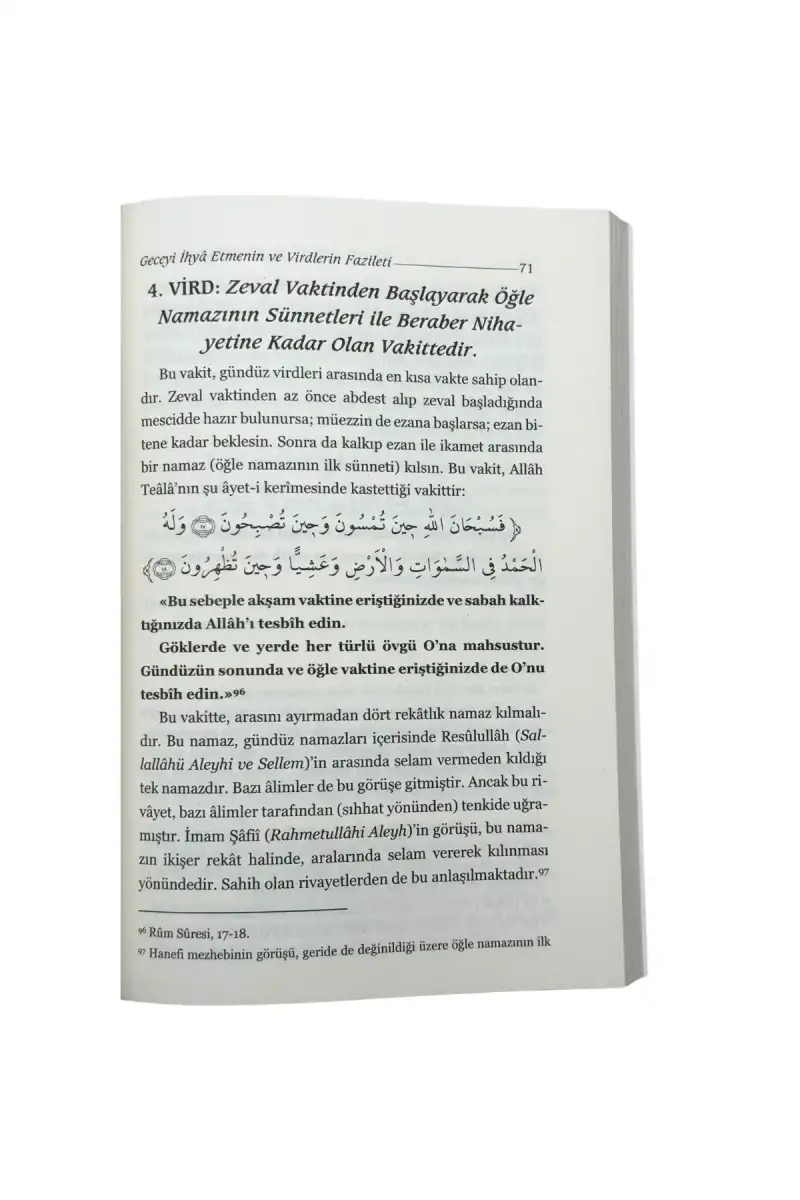 Geceyi İhyâ Etmenin ve Virdlerin Fazileti 71
4. VİRD: Zeval Vaktinden Başlayarak Öğle
Namazının Sünnetleri ile Beraber Niha-
yetine Kadar Olan Vakittedir.
Bu vakit, gündüz virdleri arasında en kısa vakte sahip olan-
dır. Zeval vaktinden az önce abdest alıp zeval başladığında
mescidde hazır bulunursa; müezzin de ezana başlarsa; ezan bi-
tene kadar beklesin. Sonra da kalkıp ezan ile ikamet arasında
bir namaz (öğle namazının ilk sünneti) kılsın. Bu vakit, Allâh
Teâlâ’nın şu âyet-i kerîmesinde kastettiği vakittir:
﴿ فَسُبْحَانَ اللّٰهِ حِينَ تُمْسُونَ وَحِينَ تُصْبِحُونَ ﴿١٧﴾ وَلَهُ
الْحَمْدُ فِي السَّمٰوَاتِ وَالْاَرْضِ وَعَشِيًّا وَحِينَ تُظْهِرُونَ ﴿١٨﴾ ﴾
«Bu sebeple akşam vaktine eriştiğinizde ve sabah kalk-
tığınızda Allâh’ı tesbîh edin.
Göklerde ve yerde her türlü övgü O’na mahsustur.
Gündüzün sonunda ve öğle vaktine eriştiğinizde de O’nu
tesbîh edin.»⁹⁶
Bu vakitte, arasını ayırmadan dört rekâtlık namaz kılmalı-
dır. Bu namaz, gündüz namazları içerisinde Resûlullâh (Sal-
lallâhü Aleyhi ve Sellem)’in arasında selam vermeden kıldığı
tek namazdır. Bazı âlimler de bu görüşe gitmiştir. Ancak bu ri-
vâyet, bazı âlimler tarafından (sıhhat yönünden) tenkide uğra-
mıştır. İmam Şâfiî (Rahmetullâhi Aleyh)’in görüşü, bu nama-
zın ikişer rekât halinde, aralarında selam vererek kılınması
yönündedir. Sahih olan rivayetlerden de bu anlaşılmaktadır.⁹⁷
⁹⁶ Rûm Sûresi, 17-18.
⁹⁷ Hanefi mezhebinin görüşü, geride de değinildiği üzere öğle namazının ilk